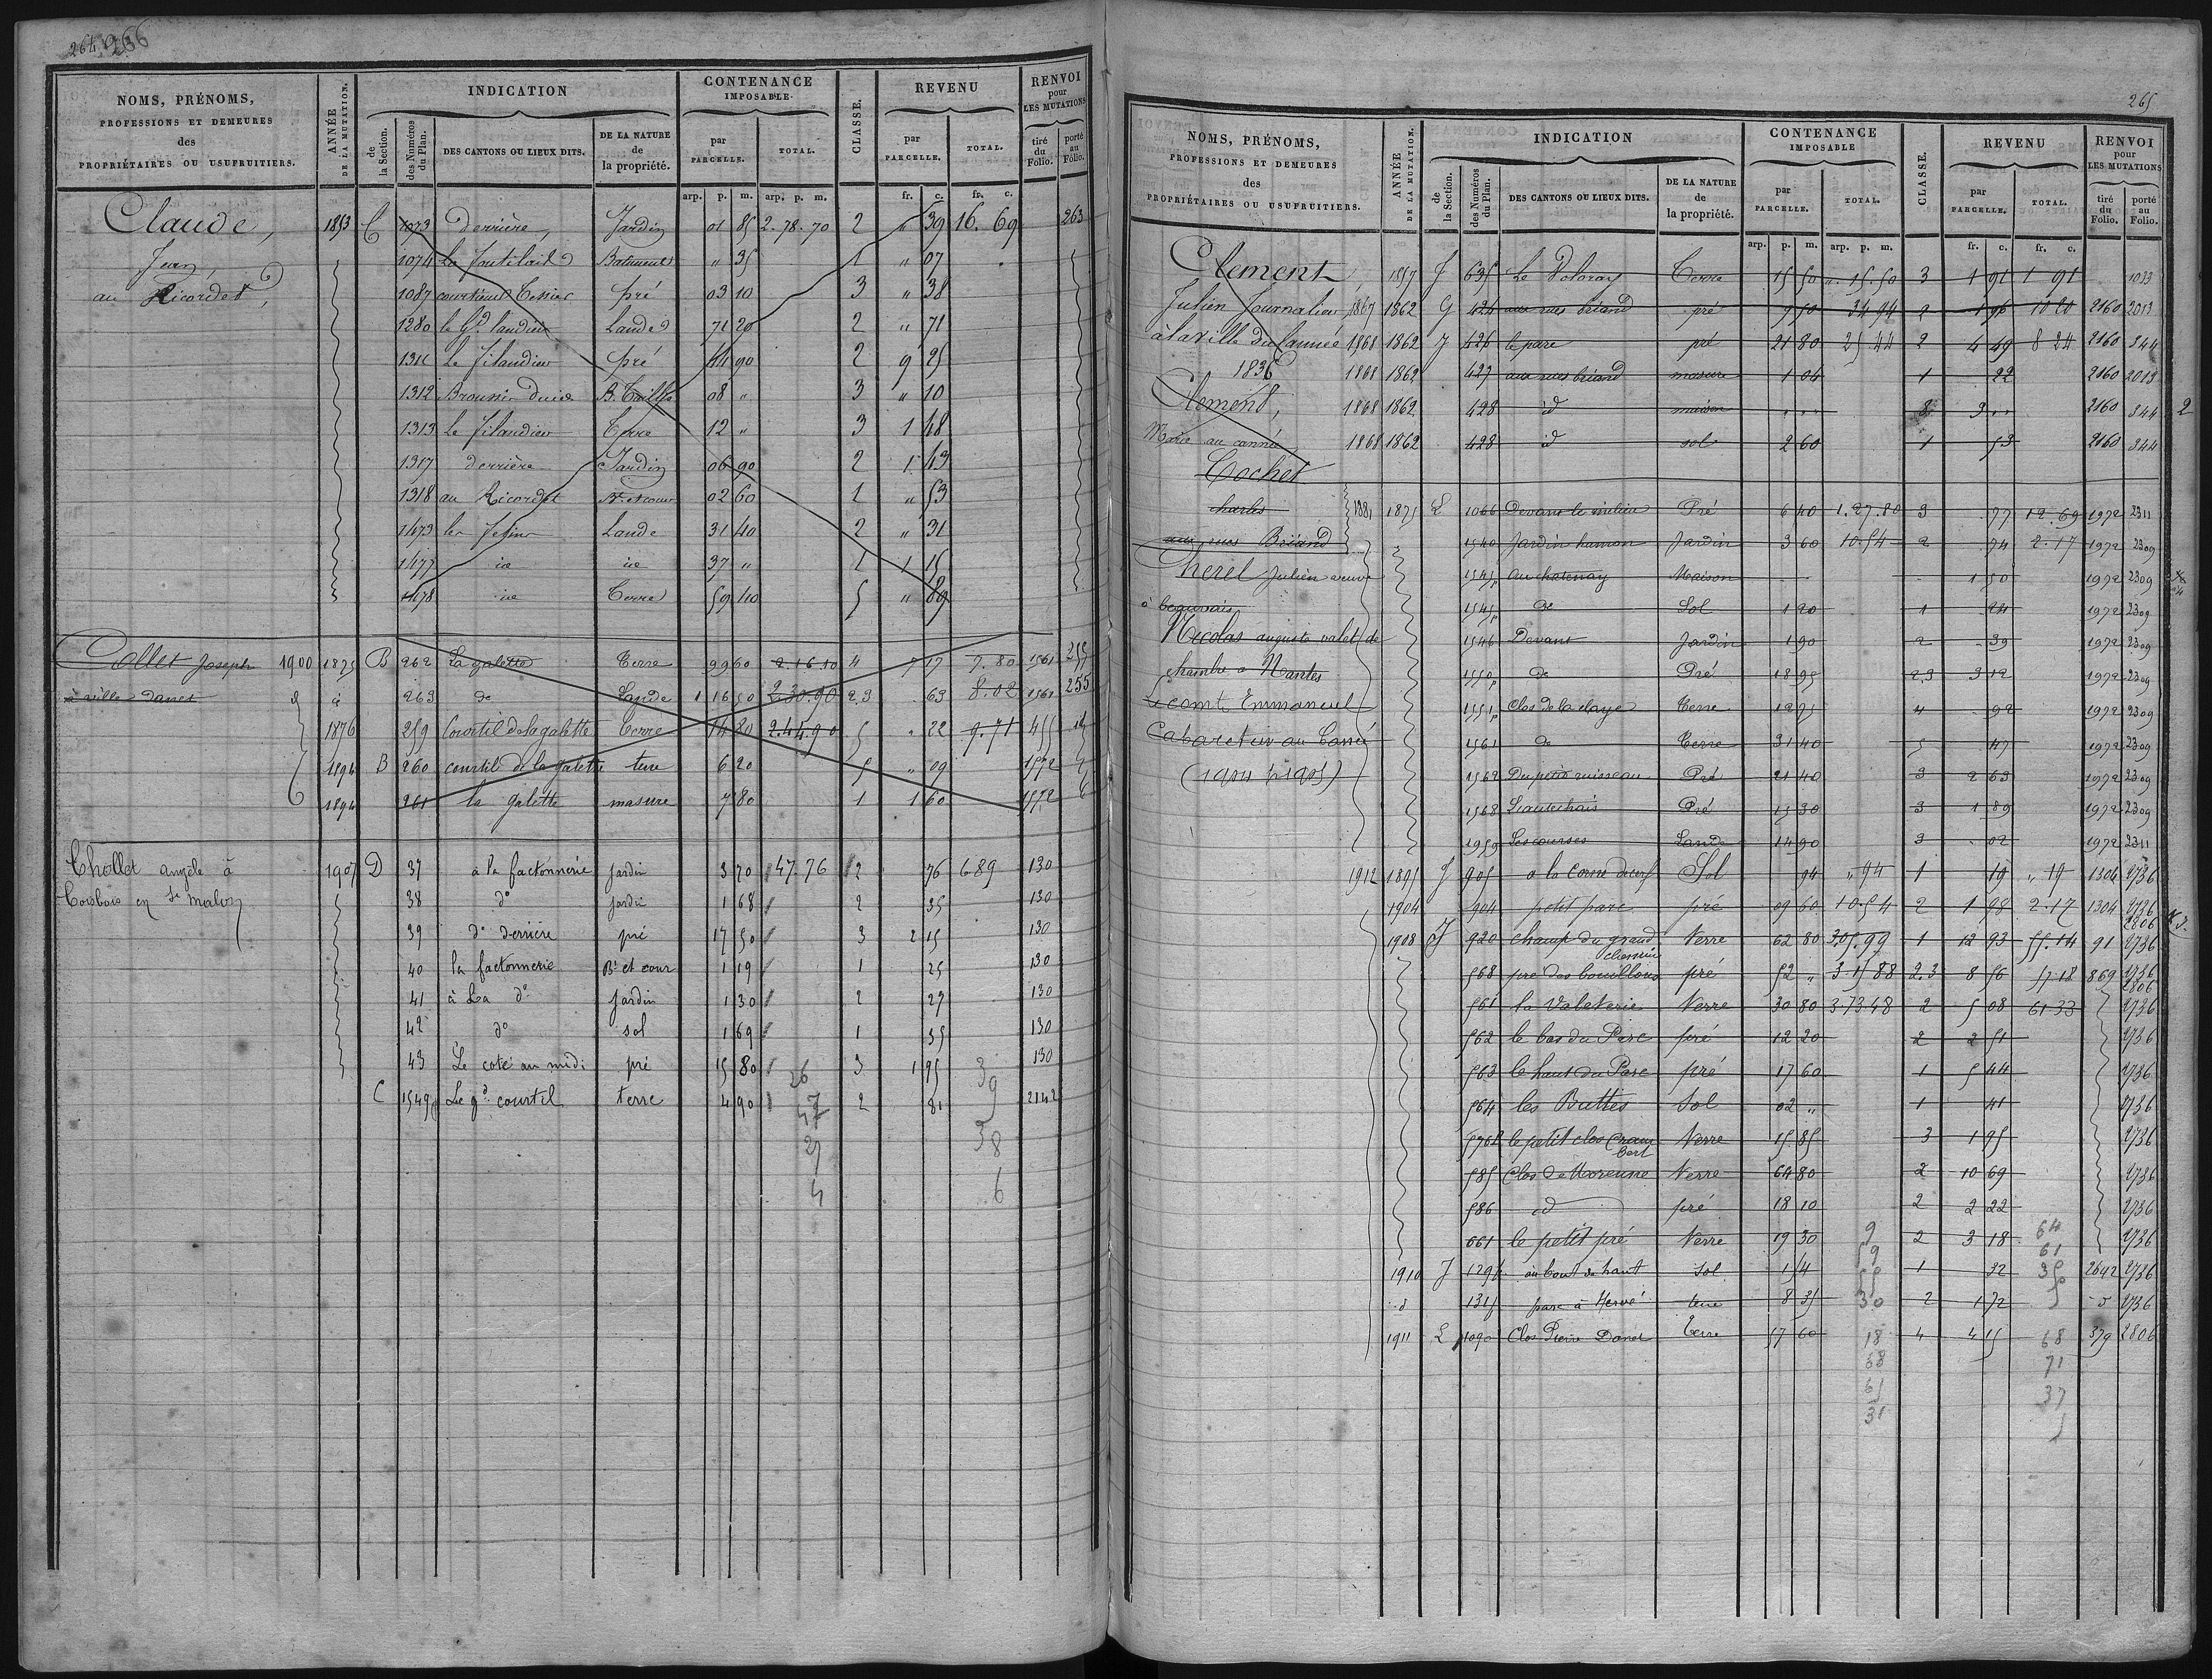 264 266
NOMS, PRÉNOMS, PROFESSIONS ET DEMEURES des PROPRIÉTAIRES OU USUFRUITIERS.
ANNÉE DE LA MUTATION.
INDICATION
de la Section.
des Numéros du Plan.
DES CANTONS OU LIEUX DITS.
DE LA NATURE de la propriété.
CONTENANCE IMPOSABLE
par PARCELLE.
TOTAL.
CLASSE.
REVENU
par PARCELLE.
TOTAL.
RENVOI pour LES MUTATIONS
tiré du Folio.
porté au Folio.
arp. p. m. arp. p. m. fr. c. fr. c.
Claude, 1853 C 1073 derrière Jardin 01 85 2.78.70 2 " 39 16.69 263
Jean, 1074 Batiment " 35 1 " 07
au Ricordel, 1087 pré 03 10 3 " 38
1280 Landes 71 20 2 " 71
1311 Le Filandier pré 44 90 2 9 25
1312 B. Taillis 08 " 3 " 10
1313 Le Filandier Terre 12 " 3 1 48
1317 derrière Jardin 06 90 2 1 43
1318 au Ricordel Bt et cour 02 60 1 " 53
1473 Lande 31 40 2 " 31
1477 id id 37 " 1 1 15
1478 id Terre 59 40 5 " 89
Collet Joseph 1900 1875 B 262 La galette Terre 99 60 2.16.10 4 7 17 7.80 1561 255
à ville danet 263 do Lande 1 16 50 2.30.90 2.3 . 63 8.02 1561 255
1876 259 Courtil de la galette Terre 14 80 2.44.90 5 " 22 9.71 455
1894 B 260 courtil de la galette terre 6 20 5 " 09 1572
1894 261 la galette masure 7 80 1 1 60 1572
Chollet angèle à 1907 D 37 à la factonnerie jardin 3 70 47.76 2 76 6 89 130
Coisbois en St malon 38 do jardin 1 68 2 35 130
39 do derrière pré 17 50 3 2 15 130
40 la factonnerie Bt et cour 1 19 1 25 130
41 à La do Jardin 1 30 2 27 130
42 do sol 1 69 1 35 130
43 Le coté au midi pré 15 80 3 1 95 130
C 1549p Le gd courtil terre 4 90 2 81 2142
26 39
47
38
6
265
NOMS, PRÉNOMS, PROFESSIONS ET DEMEURES des PROPRIÉTAIRES OU USUFRUITIERS.
ANNÉE DE LA MUTATION.
INDICATION
de la Section.
des Numéros du Plan.
DES CANTONS OU LIEUX DITS.
DE LA NATURE de la propriété.
CONTENANCE IMPOSABLE
par PARCELLE.
TOTAL.
CLASSE.
REVENU
par PARCELLE.
TOTAL.
RENVOI pour LES MUTATIONS
tiré du Folio.
porté au Folio.
arp. p. m. arp. p. m. fr. c. fr. c.
Clement 1857 J 635 Terre 15 50 ". 15.50 3 1 91 1 91 1033
Julien Journalier 1867 1862 G 424 aux rues briand pré 9 50 34 94 2 1 96 10 20 2160 2013
à la ville du cannée 1868 1862 J 426 le parc pré 21 80 25 44 2 4 49 8 24 2160 344
1836 1868 1862 427 aux rues briand masure 1 04 1 22 2160 2013
Clement, 1868 1862 428 id maison 8 9 " 2160 344 2
Marie au cannée 1868 1862 428 id sol 2 60 1 53 2160 344
Cochet
charles 1881 1875 L 1066 Devant le milieu Pré 6 40 1.27.80 3 . 77 12.69 1972 2311
aux rues Briand 1540 Jardin hamon Jardin 3 60 10.54 2 . 74 2.17 1972 2309
Cherel Julien veuve 1545p au chatenay Maison 1 50 1972 2309
à beauvais 1545p do Sol 1 20 1 . 24 1972 2309
Nicolas auguste valet de 1546 Devant Jardin 1 90 2 . 39 1972 2309
chambre a Nantes 1550p do Pré 18 95 2.3 3 12 1972 2309
Lecomte Emmanuel 1551p Clos de la claye Terre 12 75 4 . 92 1972 2309
Cabaretier au Canné 1561 do Terre 31 40 5 . 47 1972 2309
(1904 p 1905) 1562 Du petit ruisseau Pré 21 40 3 2 63 1972 2309
1568 Pré 15 30 3 1 89 1972 2309
1959 Les courses Lande 14 90 3 . 02 1972 2311
1912 1895 J 905 a la Corne de cerf Sol 94 " 94 1 19 " 19 1304 2736
1904 904 petit parc pré 09 60 10.54 2 1 98 2.17 1304 2736
2806
1908 J 920 champ du grand chemin Terre 62 80 3.05.99 1 12 93 55.14 91 2736
568 pré des bouillons pré 52 " 3 15 88 2.3 8 56 57 18 869 2736
2806
561 la Valeterie Terre 30 80 3 73 48 2 5 08 61 33 2736
562 le bas du Parc pré 12 20 2 2 51 2736
563 le haut du Parc pré 17 60 1 5 44 2736
564 les Buttes Sol 02 " 1 41 2736
570p le petit clos Terre 15 85 3 1 95 2736
585 Clos de Morenne Terre 64 80 2 10 69 2736
586 id pré 18 10 2 2 22 2736
661 le petit pré Terre 19 30 2 3 18 2736
1910 J 129p au bout de haut sol 1 54 1 32 2642 2736
d 131p parc à Hervé terre 8 35 2 1 72 d 2736
1911 L 1090 Clos Pierre Danet Terre 57 60 4 4 15 379 2806
9 64
59 61
55 35
30 5
18 68
68 71
65 37
31 5